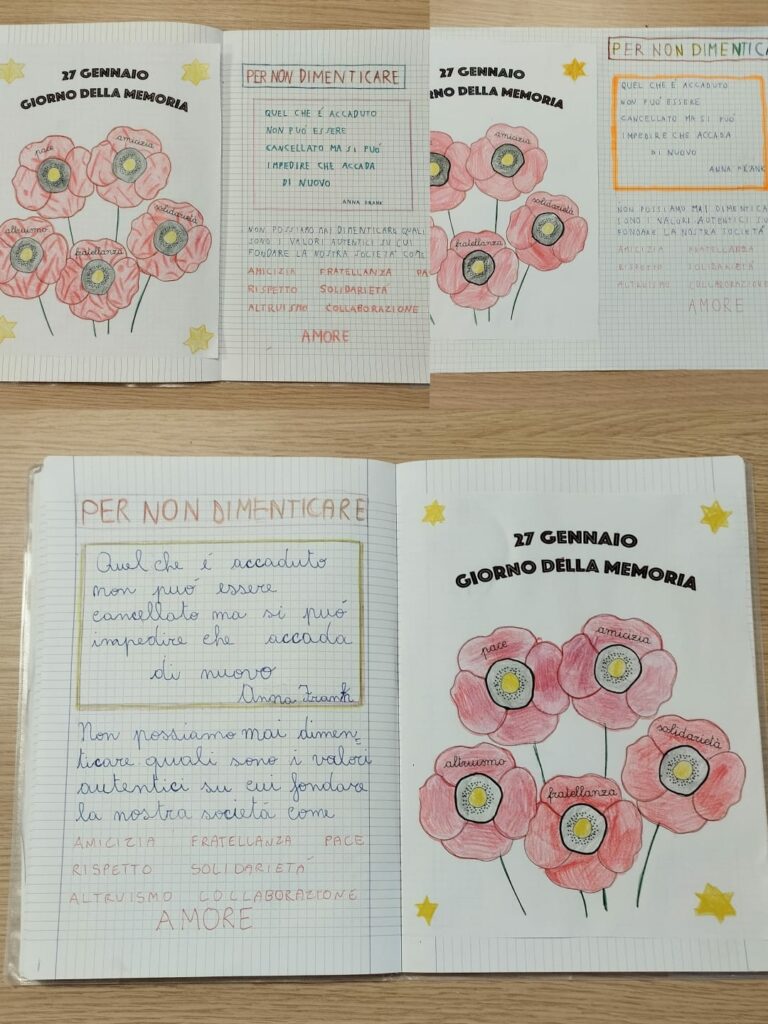 27 GENNAIO
GIORNO DELLA MEMORIA
pace
amicizia
altruismo
solidarietà
fratellanza
PER NON DIMENTICARE
QUEL CHE É ACCADUTO
NON PUÓ ESSERE
CANCELLATO MA SI PUÓ
IMPEDIRE CHE ACCADA
DI NUOVO
ANNA FRANK
NON POSSIAMO MAI DIMENTICARE QUALI
SONO I VALORI AUTENTICI SU CUI
FONDARE LA NOSTRA SOCIETÀ COME
AMICIZIA FRATELLANZA PA
RISPETTO SOLIDARIETÀ
ALTRUISMO COLLABORAZIONE
AMORE
27 GENNAIO
RNO DELLA MEMORIA
amicizia
solidarietà
fratellanza
PER NON DIMENTICA
QUEL CHE É ACCADUTO
NON PUÓ ESSERE
CANCELLATO MA SI PUÓ
IMPEDIRE CHE ACCADA
DI NUOVO
ANNA FRANK
NON POSSIAMO MAI DIMENTICA
SONO I VALORI AUTENTICI SU
FONDARE LA NOSTRA SOCIETÁ
AMICIZIA
RISPETTO SOLIDARIETÁ
ALTRUISMO COLLABORAZIONE
AMORE
PER NON DIMENTICARE
Quel che é accaduto
non puó essere
cancellato ma si puó
impedire che accada
di nuovo
Anna Frank
Non possiamo mai dimen=
ticare quali sono i valori
autentici su cui fondare
la nostra societá come
AMICIZIA FRATELLANZA PACE
RISPETTO SOLIDARIETÁ
ALTRUISMO COLLABORAZIONE
AMORE
27 GENNAIO
GIORNO DELLA MEMORIA
pace
amicizia
solidarietà
altruismo
fratellanza